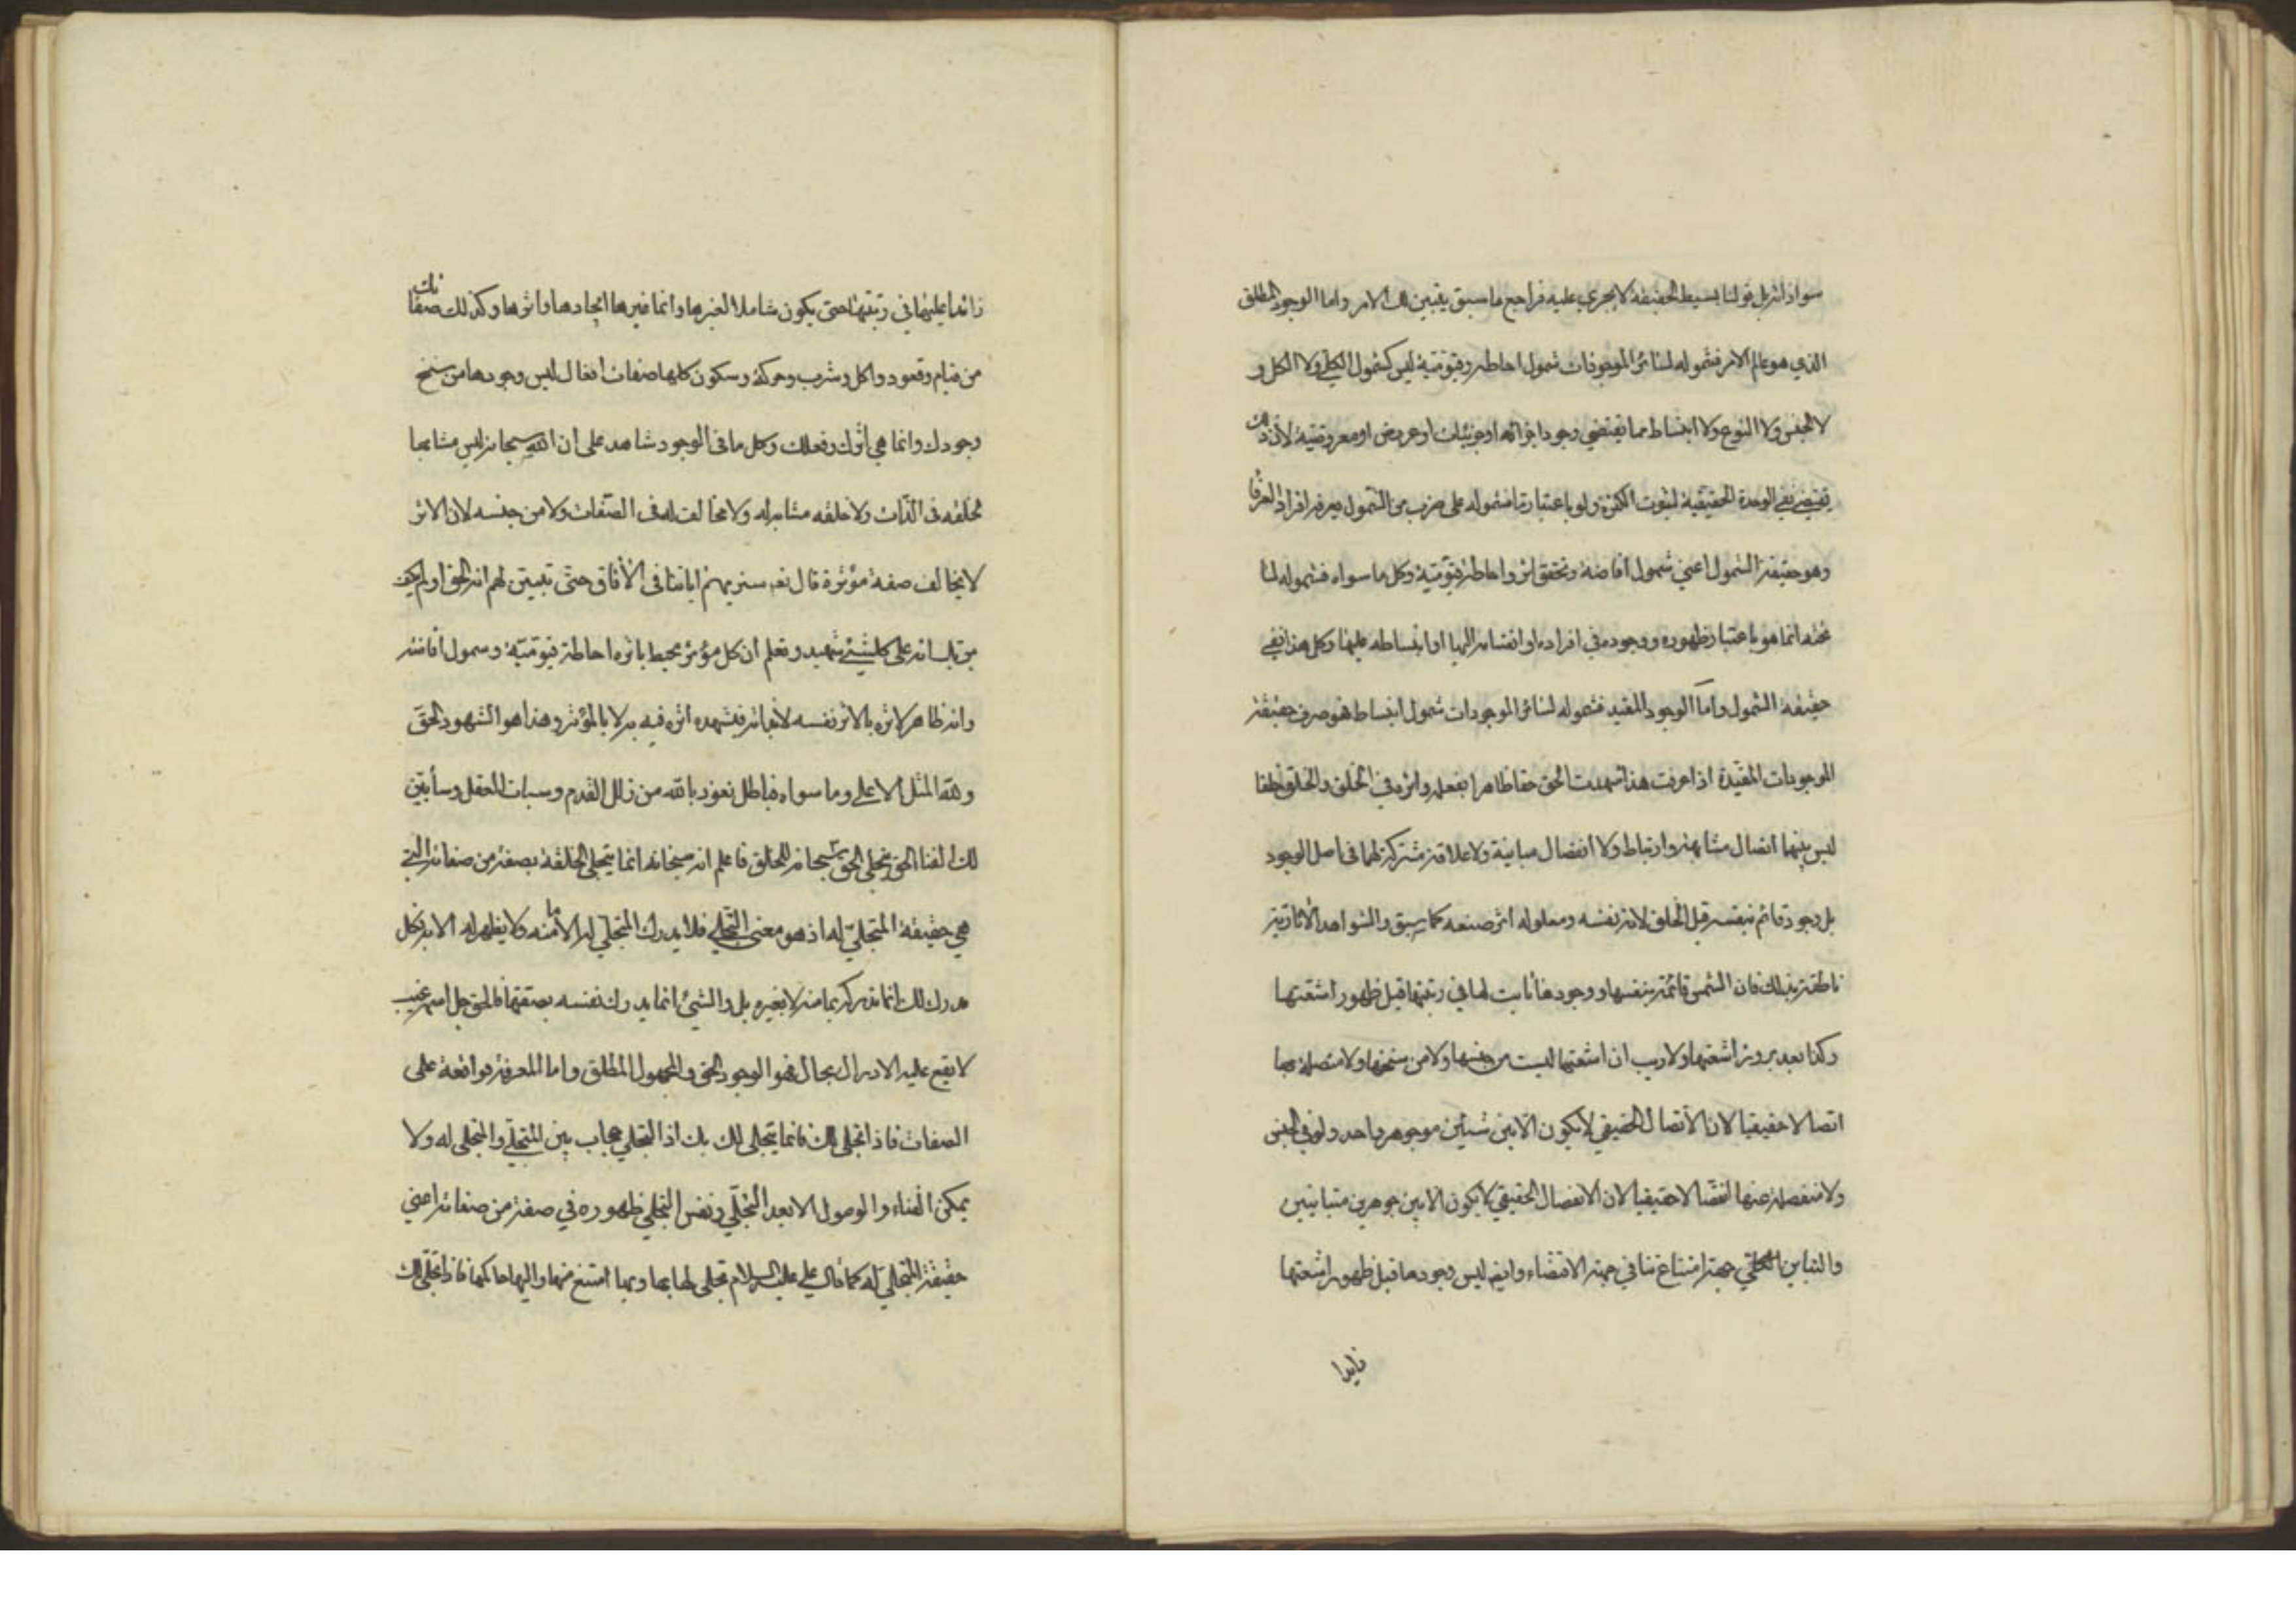 سواذاته بل قولنا بسيط الحقيقة لا يجري عليه فراجع ما سبق يتبين لك الامر واما الوجود المطلق
الذي هو عالم الامر فشموله لسائر الموجودات شمول احاطة وقيومية ليس كشمول الكلي ولا الكل و
لا الجنس ولا النوع ولا انبساط مما يقتضي وجود اجزائه او جزئيات او عروض او معروضية لان ذلك
يقتضي نفي الوحدة الحقيقية لثبوت الكثرة ولو باعتبار ما فشموله على ضرب من الشمول يعرفه افراد العرفا
وهو حقيقة الشمول اعني شمول افاضة وتحقق اثر واحاطة قيومية وكل ما سواه فشموله لما
تحته انما هو باعتبار ظهوره ووجوده في افراده او انقسامه اليها او انبساطه عليها وكل هذا ينفي
حقيقة الشمول واما الوجود المقيد فشموله لسائر الموجودات شمول انبساط فهو صرف حقيقة
الموجودات المقيدة اذا عرفت هذا شهدت الحق حقا ظاهرا بفعله واثره في الخلق والخلق خلقا
ليس بينهما اتصال مشابهة وارتباط ولا انفصال مباينة ولا علاقة مشتركة لهما في اصل الوجود
بل وجوده قائم بنفسه قبل الخلق لانه نفسه ومعلوله اثر صنعه كما سبق والشواهد الافاقية
ناطقة بذلك فان الشمس قائمة بنفسها ووجودها ثابت لها في رتبتها قبل ظهور اشعتها
وكذا بعد بروز اشعتها ولا ريب ان اشعتها ليست من جنسها ولا من سنخها ولا متصلة بها
اتصالا حقيقيا لان الاتصال الحقيقي لا يكون الا بين شيئين من جوهر واحد ولو في الجنس
ولا منفصلة عنها انفصالا حقيقيا لان الانفصال الحقيقي لا يكون الا بين جوهرين متباينين
والتباين الحقي جهة امتناع تنافي جهة الاقتضاء وايضا ليس وجودها قبل ظهور اشعتها
زايدا
زائدا عليها في رتبتها حتى يكون شاملا لغيرها وانما غيرها ايجادها واثرها وكذلك صفاتك
من قيام وقعود واكل وشرب وحركة وسكون كلها صفات افعال ليس وجودها من سنخ
وجودك وانما هي أثرك وفعلك وكل ما في الوجود شاهد على ان الله سبحانه ليس مشابها
لخلقه في الذات ولا خلقه مشابه له ولا مخالف له في الصفات ولا من جنسه لان الاثر
لا يخالف صفة مؤثره قال تعا سنريهم اياتنا في الأفاق حتى تبيين لهم انه الحق اولم يكف
بربك انه على كلشيئ شهيد وتعلم ان كل مؤثر محيط باثره احاطة قيومية وشمول افاضة
وانه ظاهر لاثره بالاثر نفسه لا بذاته فيشهده اثره فيه به لا بالمؤثر وهذا هو الشهود الحق
ولله المثل الاعلى وما سواه فباطل نعوذ بالله من زلل القدم وسبات العقل وسأبين
لك الفنا الحق وتجلي الحق سبحانه للخلق فاعلم انه سبحانه انما يتجلى لخلقه بصفة من صفاته التي
هي حقيقة المتجلي له اذ هو معنى التجلي فلا يدرك المتجلي له الا ما منه ولا يظهر له الا به فكل
مدرك لك انما تدركه بما منه لا بغيره بل والشيئ انما يدرك نفسه بصفتها فالحق جل اسمه غيب
لا يقع عليه الادراك بحال فهو الوجود الحق والمجهول المطلق واما المعرفة فواقعة على
الصفات فاذا تجلى لك فانما يتجلى لك بك اذ التجلي حجاب بين المتجلي والمتجلى له ولا
يمكن الفناء والوصول الا بعد التجلي ونفس التجلي ظهوره في صفة من صفاته اعني
حقيقة المتجلي له كما قال علي عليه السلام تجلى لها بها وبها امتنع منها واليها حاكمها فاذا تجلى لك